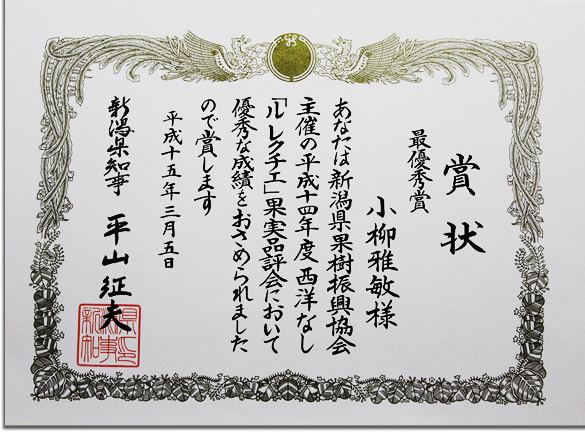 賞状
最優秀賞
小柳雅敏様
あなたは新潟県果樹振興協会
主催の平成十四年度西洋なし
「ル レクチエ」果実品評会において
優秀な成績をおさめられました
ので賞します
平成十五年三月五日
新潟県知事 平山征夫